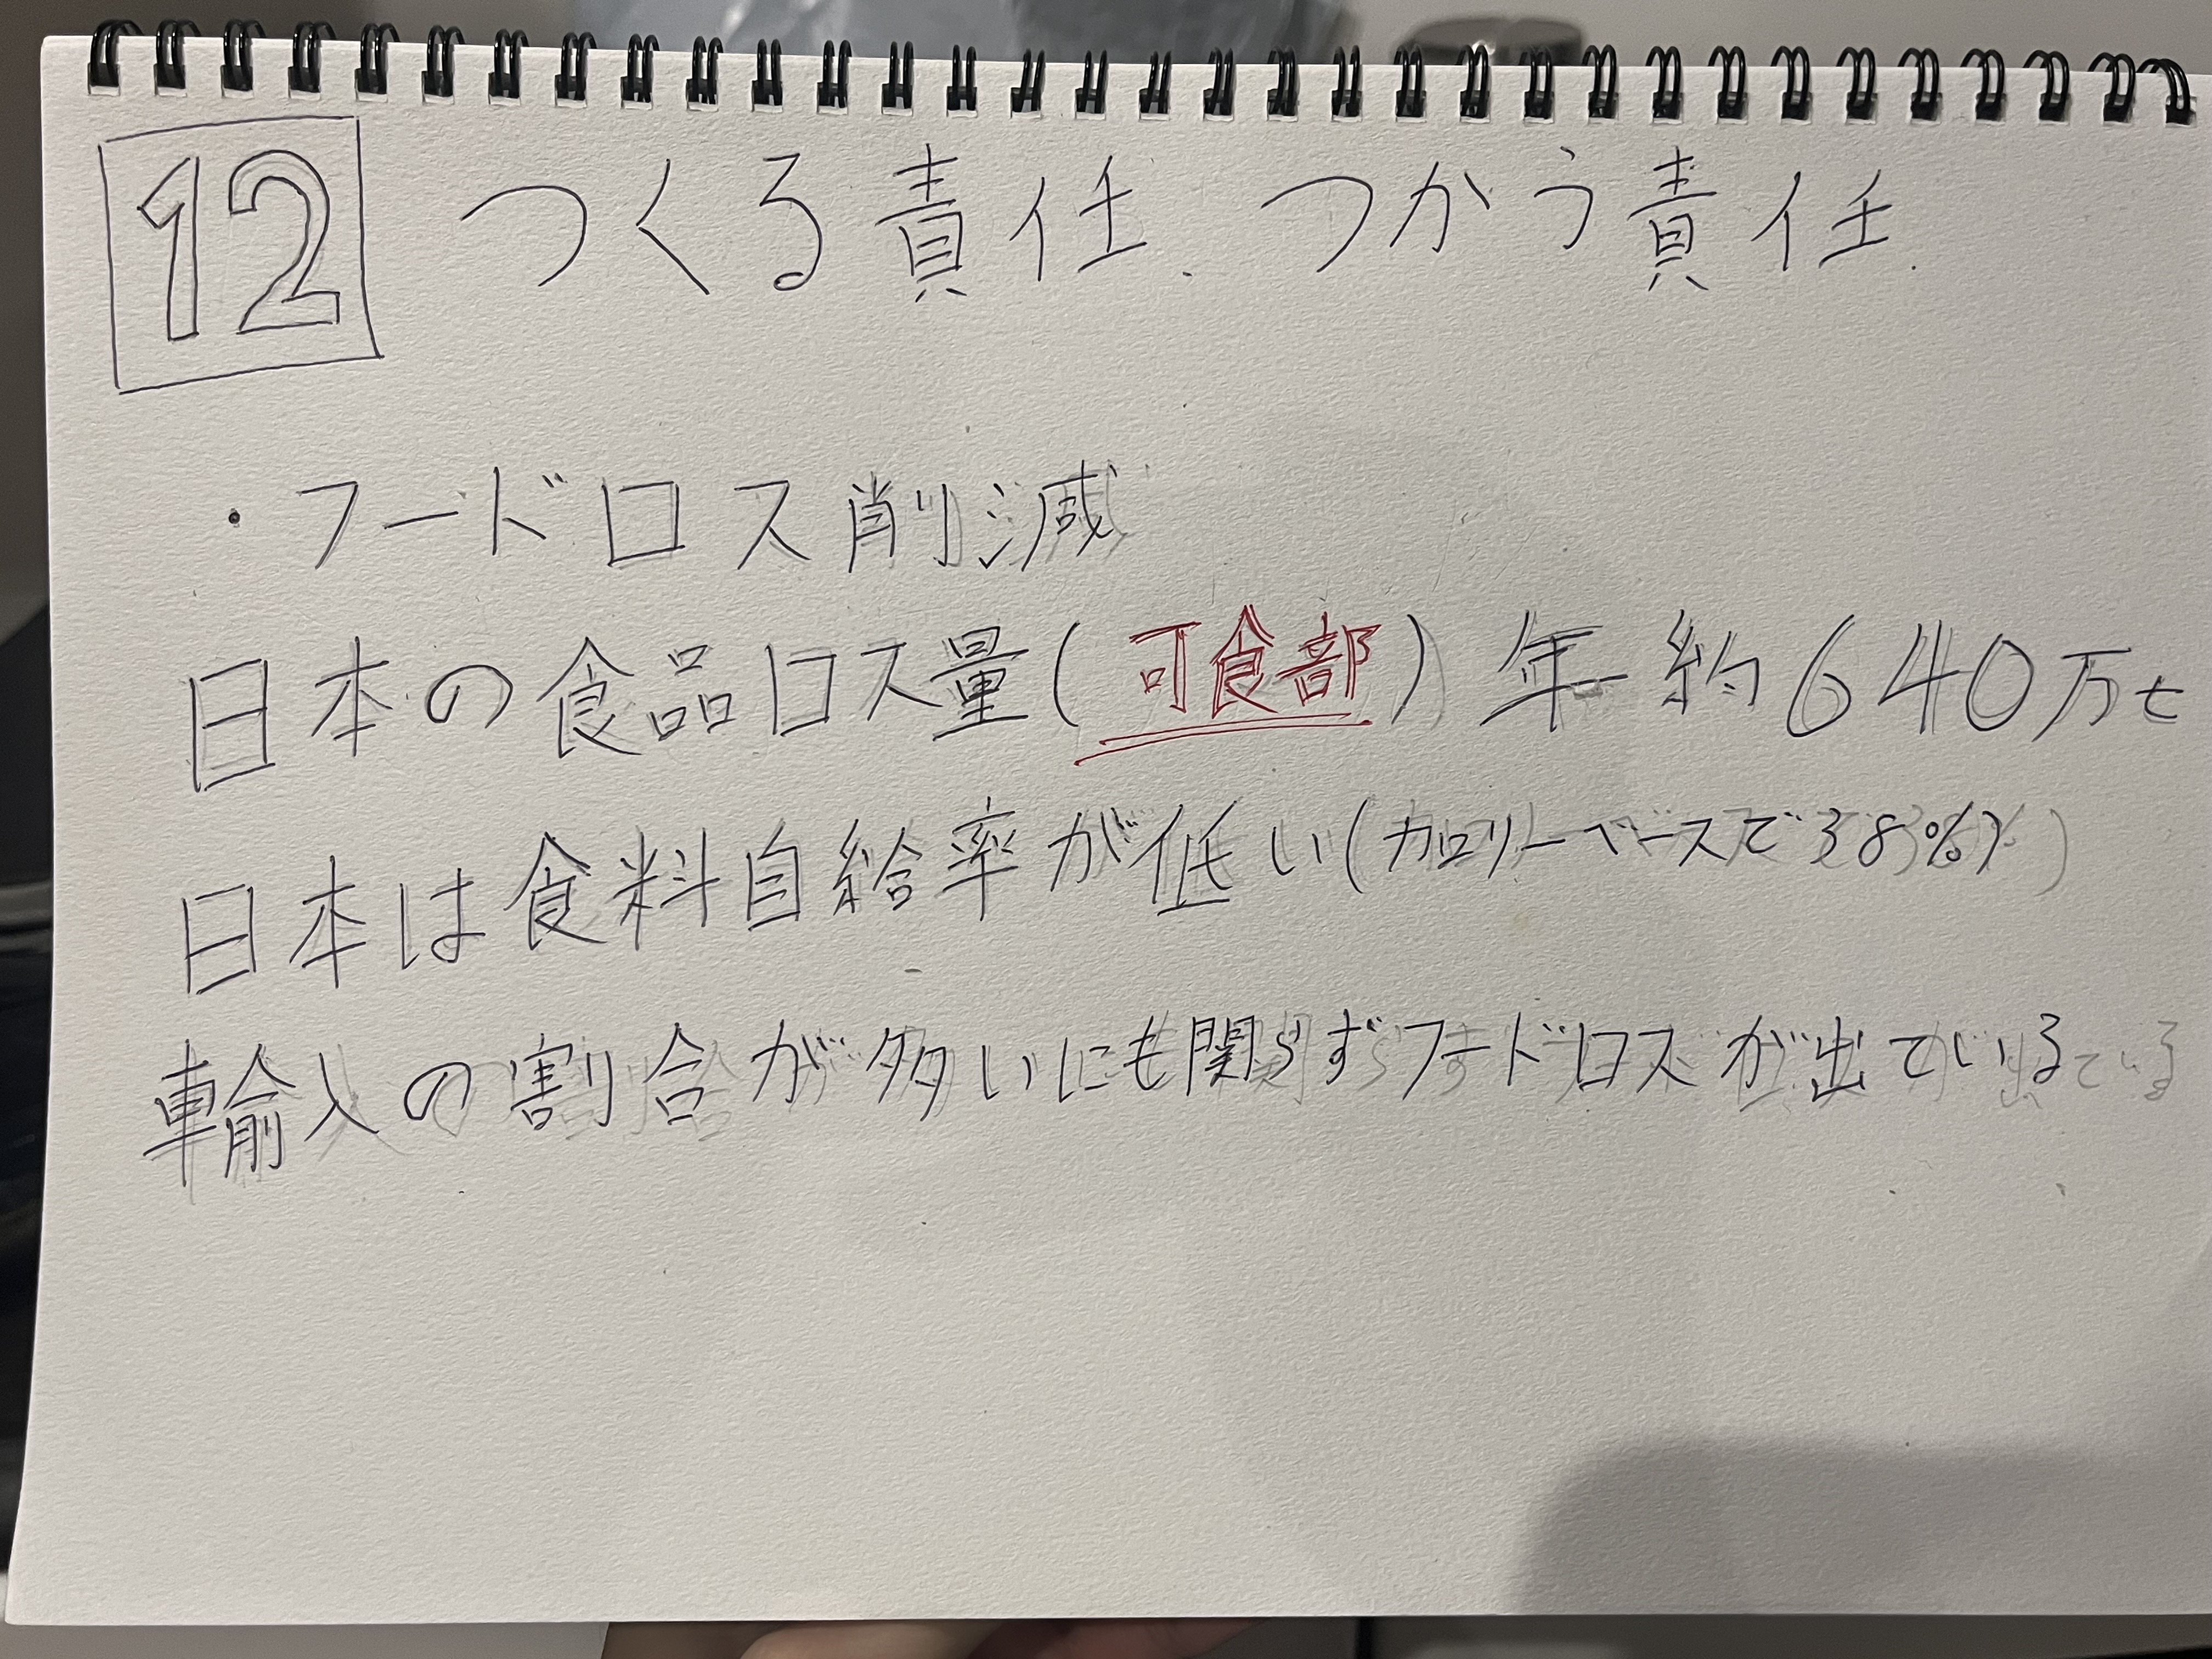 12 つくる責任、つかう責任.
・フードロス削減
日本の食品ロス量(可食部)年約640万t
日本は食料自給率が低い(カロリーベースで38%)
輸入の割合が多いにも関らずフードロスが出ている